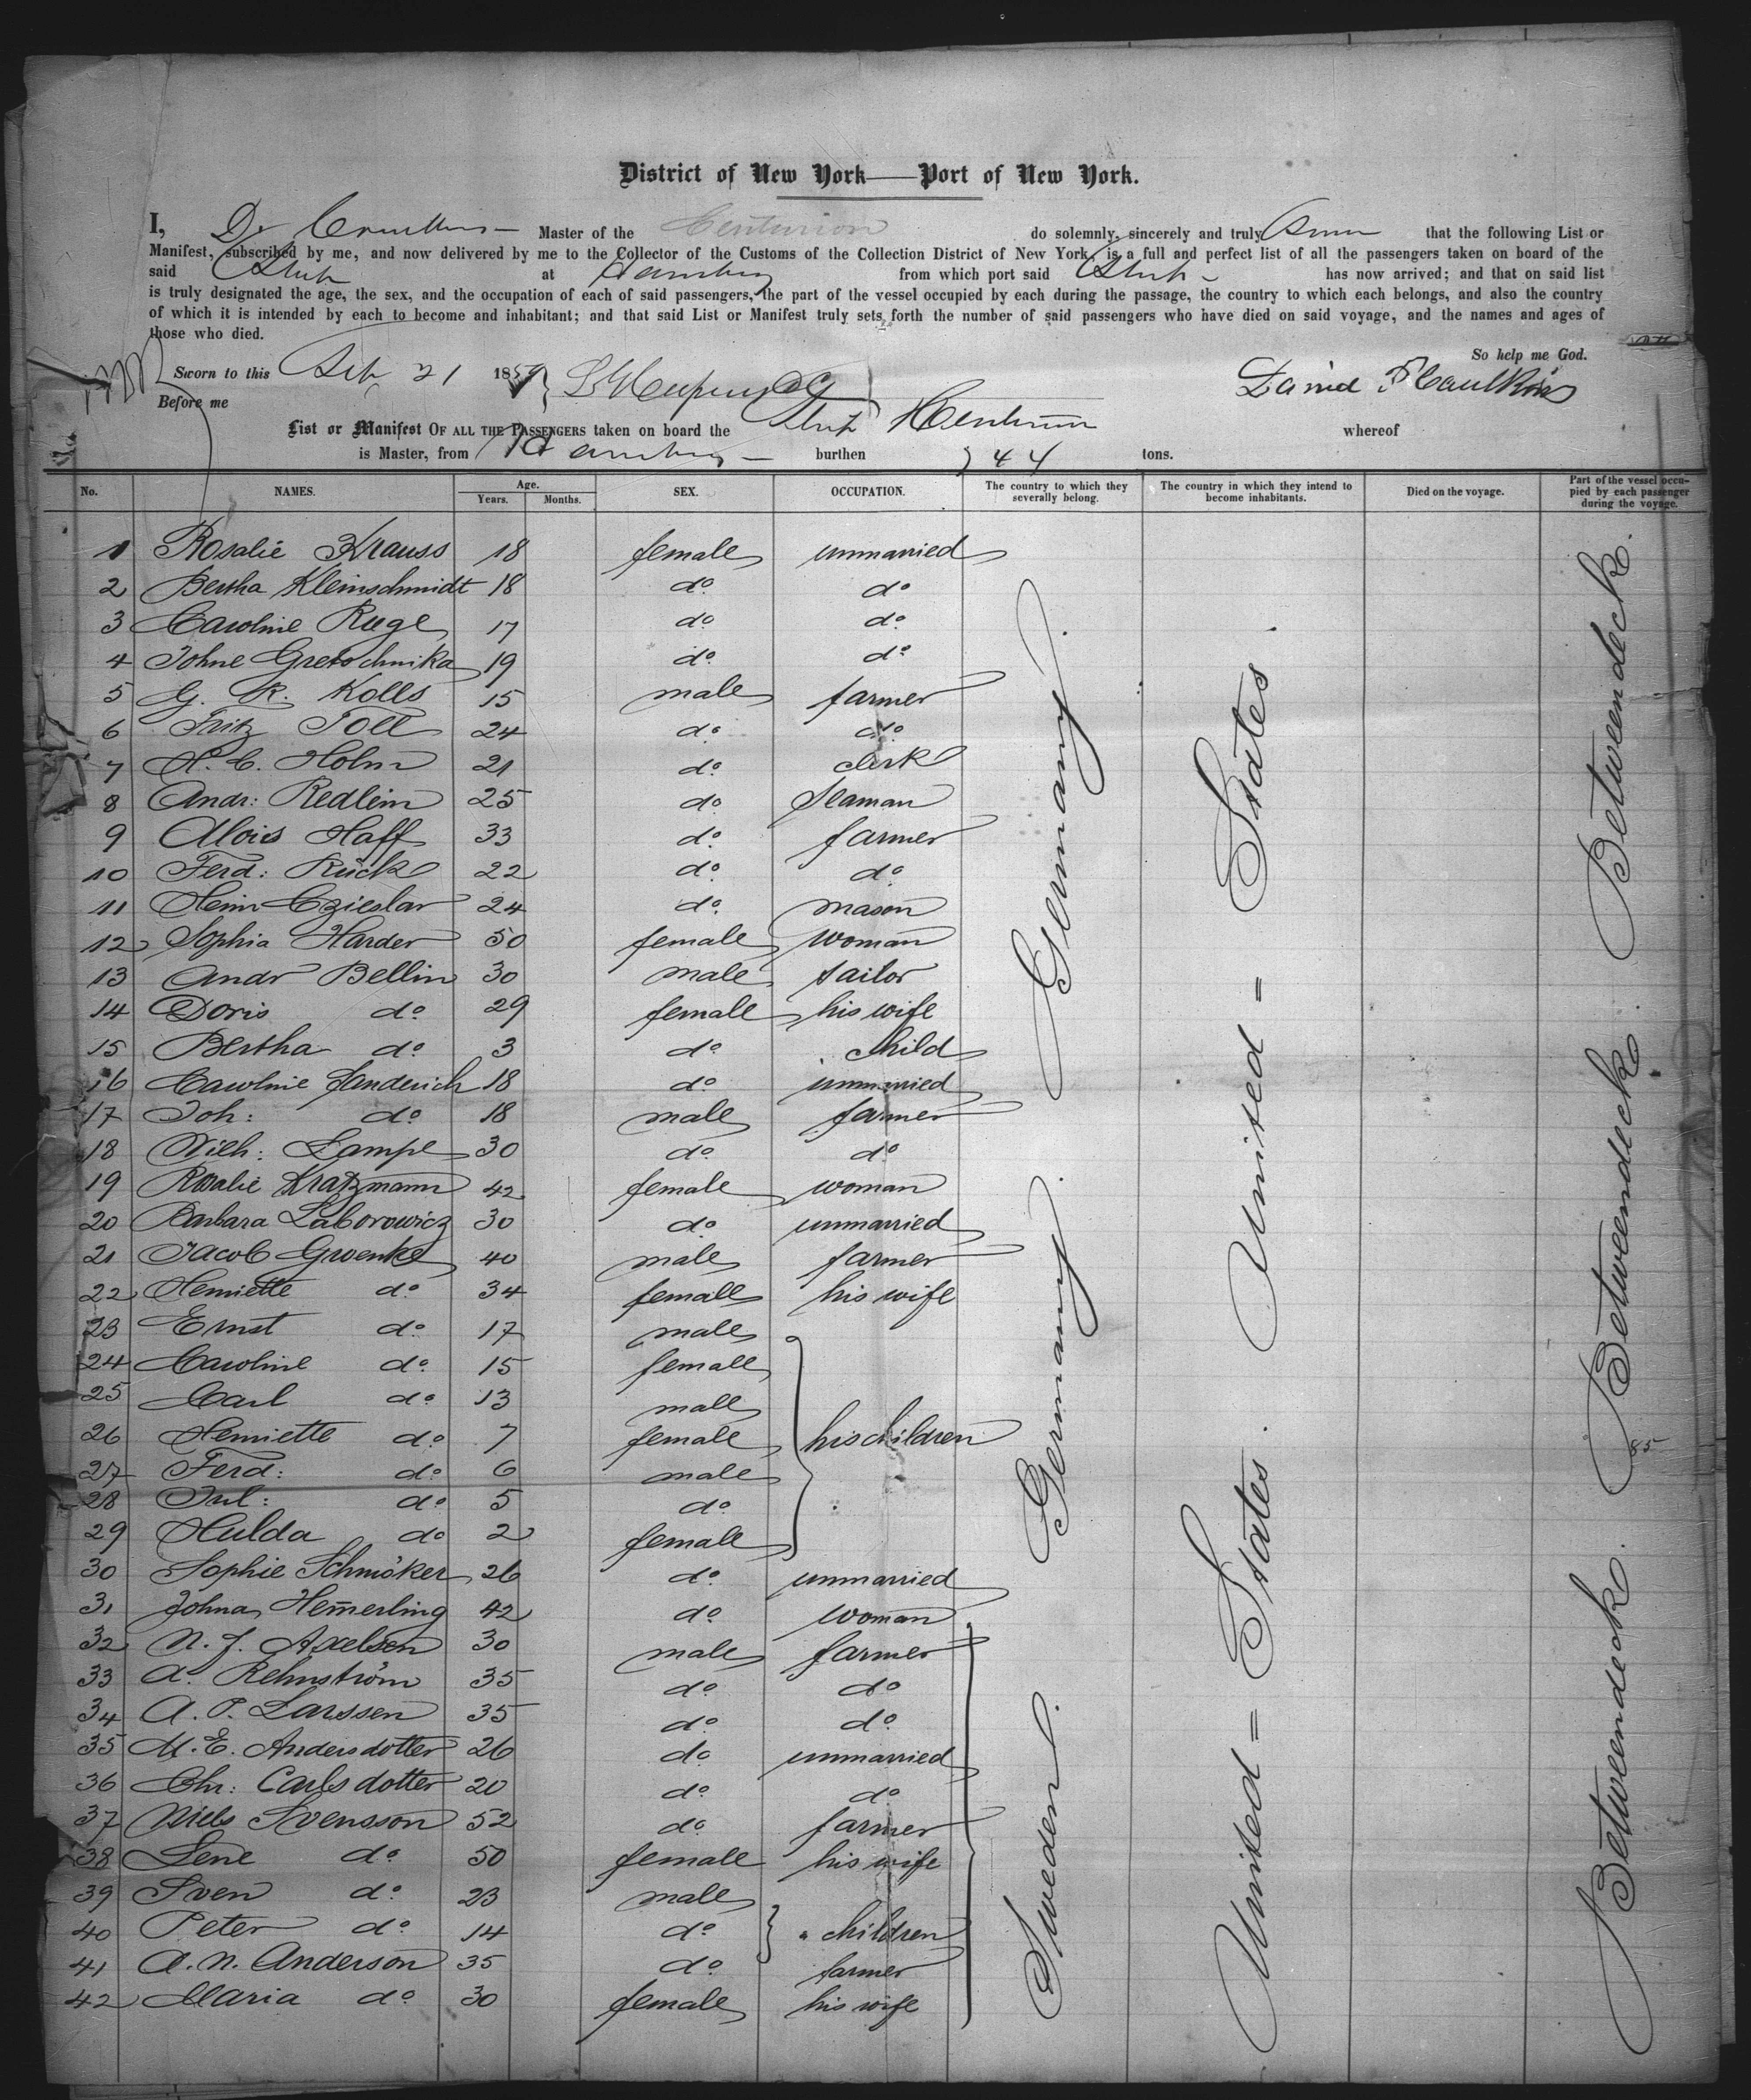 District of New York — Port of New York.
I, D. Caulkins Master of the Centurion do solemnly, sincerely and truly swear that the following List or
Manifest, subscribed by me, and now delivered by me to the Collector of the Customs of the Collection District of New York, is a full and perfect list of all the passengers taken on board of the
said Ship at Hamburg from which port said Ship has now arrived; and that on said list
is truly designated the age, the sex, and the occupation of each of said passengers, the part of the vessel occupied by each during the passage, the country to which each belongs, and also the country
of which it is intended by each to become and inhabitant; and that said List or Manifest truly sets forth the number of said passengers who have died on said voyage, and the names and ages of
those who died.
So help me God.
Sworn to this 21 185
Before me
David Caulkins
List or Manifest OF ALL THE PASSENGERS taken on board the Ship Centurion whereof
is Master, from Hamburg burthen 44 tons.
No. NAMES. Age. Years. Months. SEX. OCCUPATION. The country to which they severally belong. The country in which they intend to become inhabitants. Died on the voyage. Part of the vessel occupied by each passenger during the voyage.
1 Rosalie Krauss 18 female unmarried
2 Bertha Kleinschmidt 18 do do
3 Caroline Ruge 17 do do
4 Johne Gretschnika 19 do do
5 G. R. Kolls 15 male farmer
6 Fritz Toll 24 do do
7 H. C. Holm 21 do clerk
8 Andr: Redlein 25 do Seaman
9 Alois Haff 33 do farmer
10 Ferd: Rück 22 do do
11 Heinr Czieslar 24 do mason
12 Sophia Harder 50 female woman
13 Andr Bellin 30 male tailor
14 Doris do 29 female his wife
15 Bertha do 3 do child
16 Caroline Sanderich 18 do unmarried
17 Joh: do 18 male farmer
18 Wilh: Lampe 30 do do
19 Rosalie Kratzmann 42 female woman
20 Barbara Laborowicz 30 do unmarried
21 Jacob Groenke 40 male farmer
22 Henriette do 34 female his wife
23 Ernst do 17 male
24 Caroline do 15 female
25 Carl do 13 male
26 Henriette do 7 female his children
27 Ferd: do 6 male
28 Jul: do 5 do
29 Hulda do 2 female
30 Sophie Schmöker 26 do unmarried
31 Johna Hemerling 42 do woman
32 N. J. Axelsen 30 male farmer
33 A. Rehnström 35 do do
34 A. P. Larssen 35 do do
35 M. E. Andersdotter 26 do unmarried
36 Chr: Carlsdotter 20 do do
37 Niels Svensson 52 do farmer
38 Lene do 50 female his wife
39 Sven do 23 male
40 Peter do 14 do " children
41 A. N. Anderson 35 do farmer
42 Maria do 30 female his wife
Germany.
Germany.
Sweden.
United = States.
United = States.
Betweendeck.
Betweendeck.
Betweendeck.
85